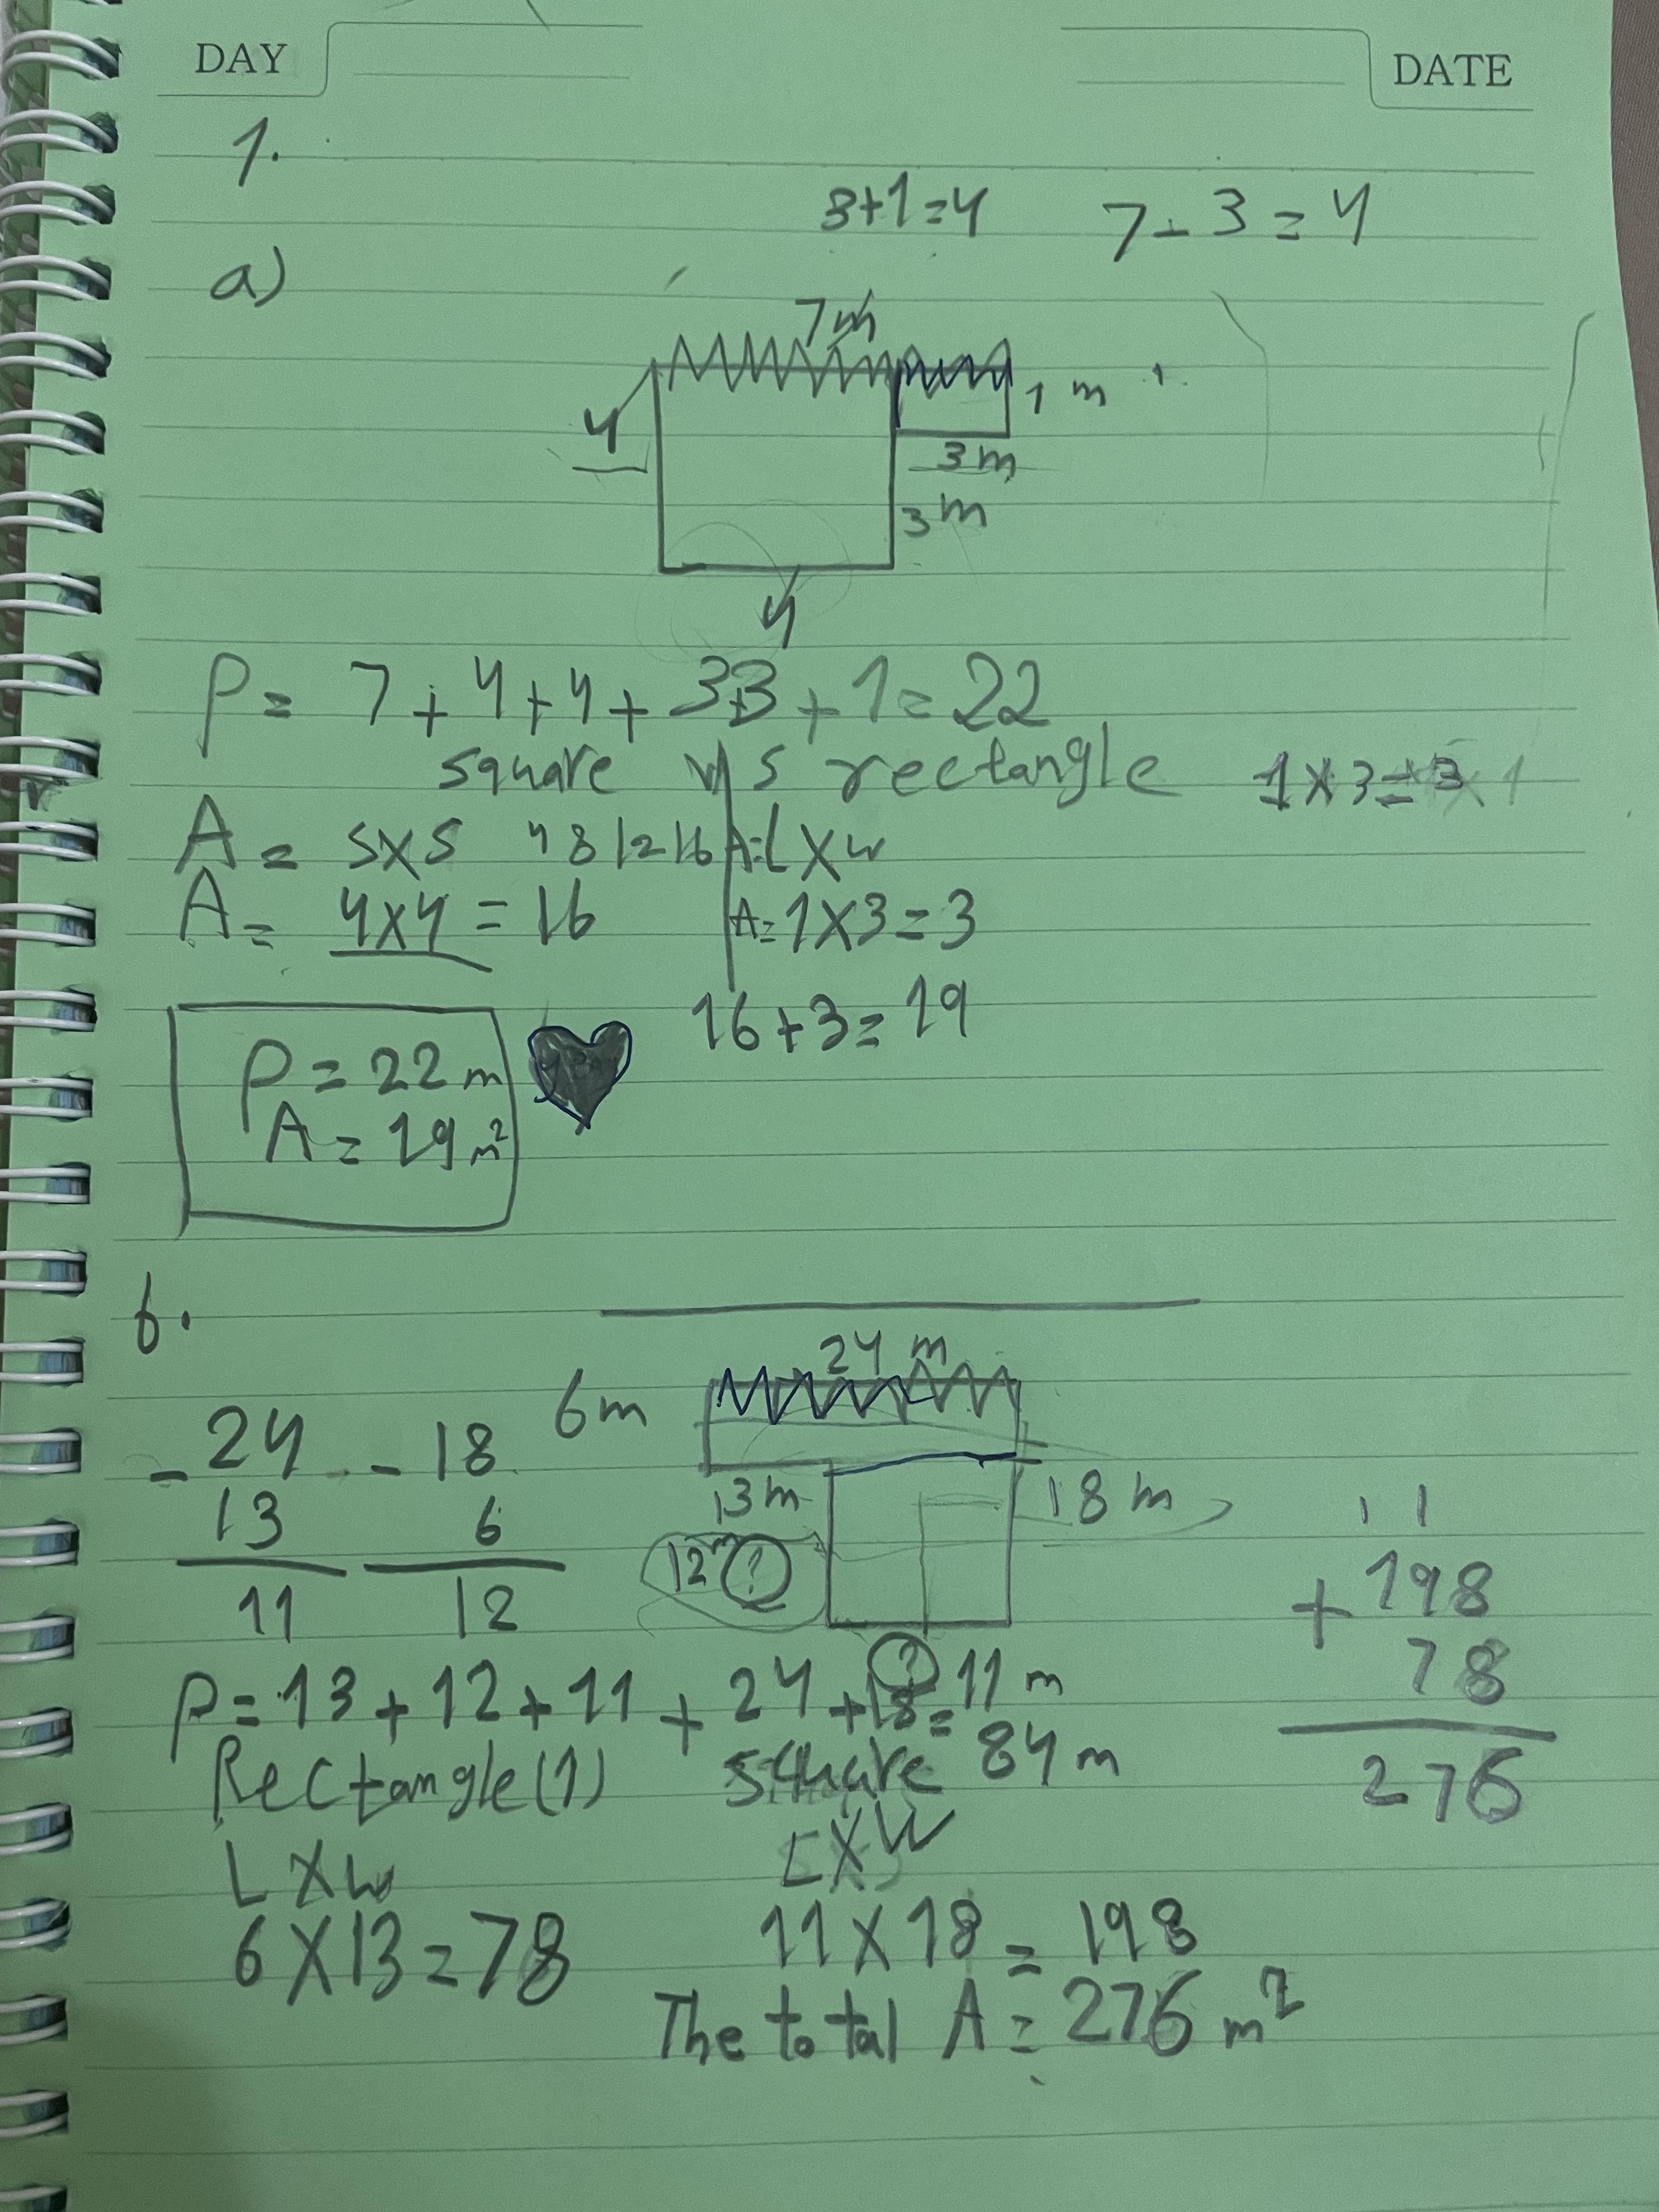 DAY
DATE
1.
3+1=4 7-3=4
a)
7m
1 m
4
3m
3m
4
P= 7+4+4+3+3+1=22
square v/s rectangle 1x3=3
A= sxs 4 8 12 16 A=Lxw
A= 4x4=16 A=1x3=3
16+3=19
P=22m
A=19m²
b.
24 m
6m
-24 -18
13m 18m
13 6
12m ?
11 12
1 1
+198
78
276
? 11m
P=13+12+11+24+18= 84m
Rectangle(1) square
Lxw Lxw
6x13=78 11x18=198
The total A=276 m²